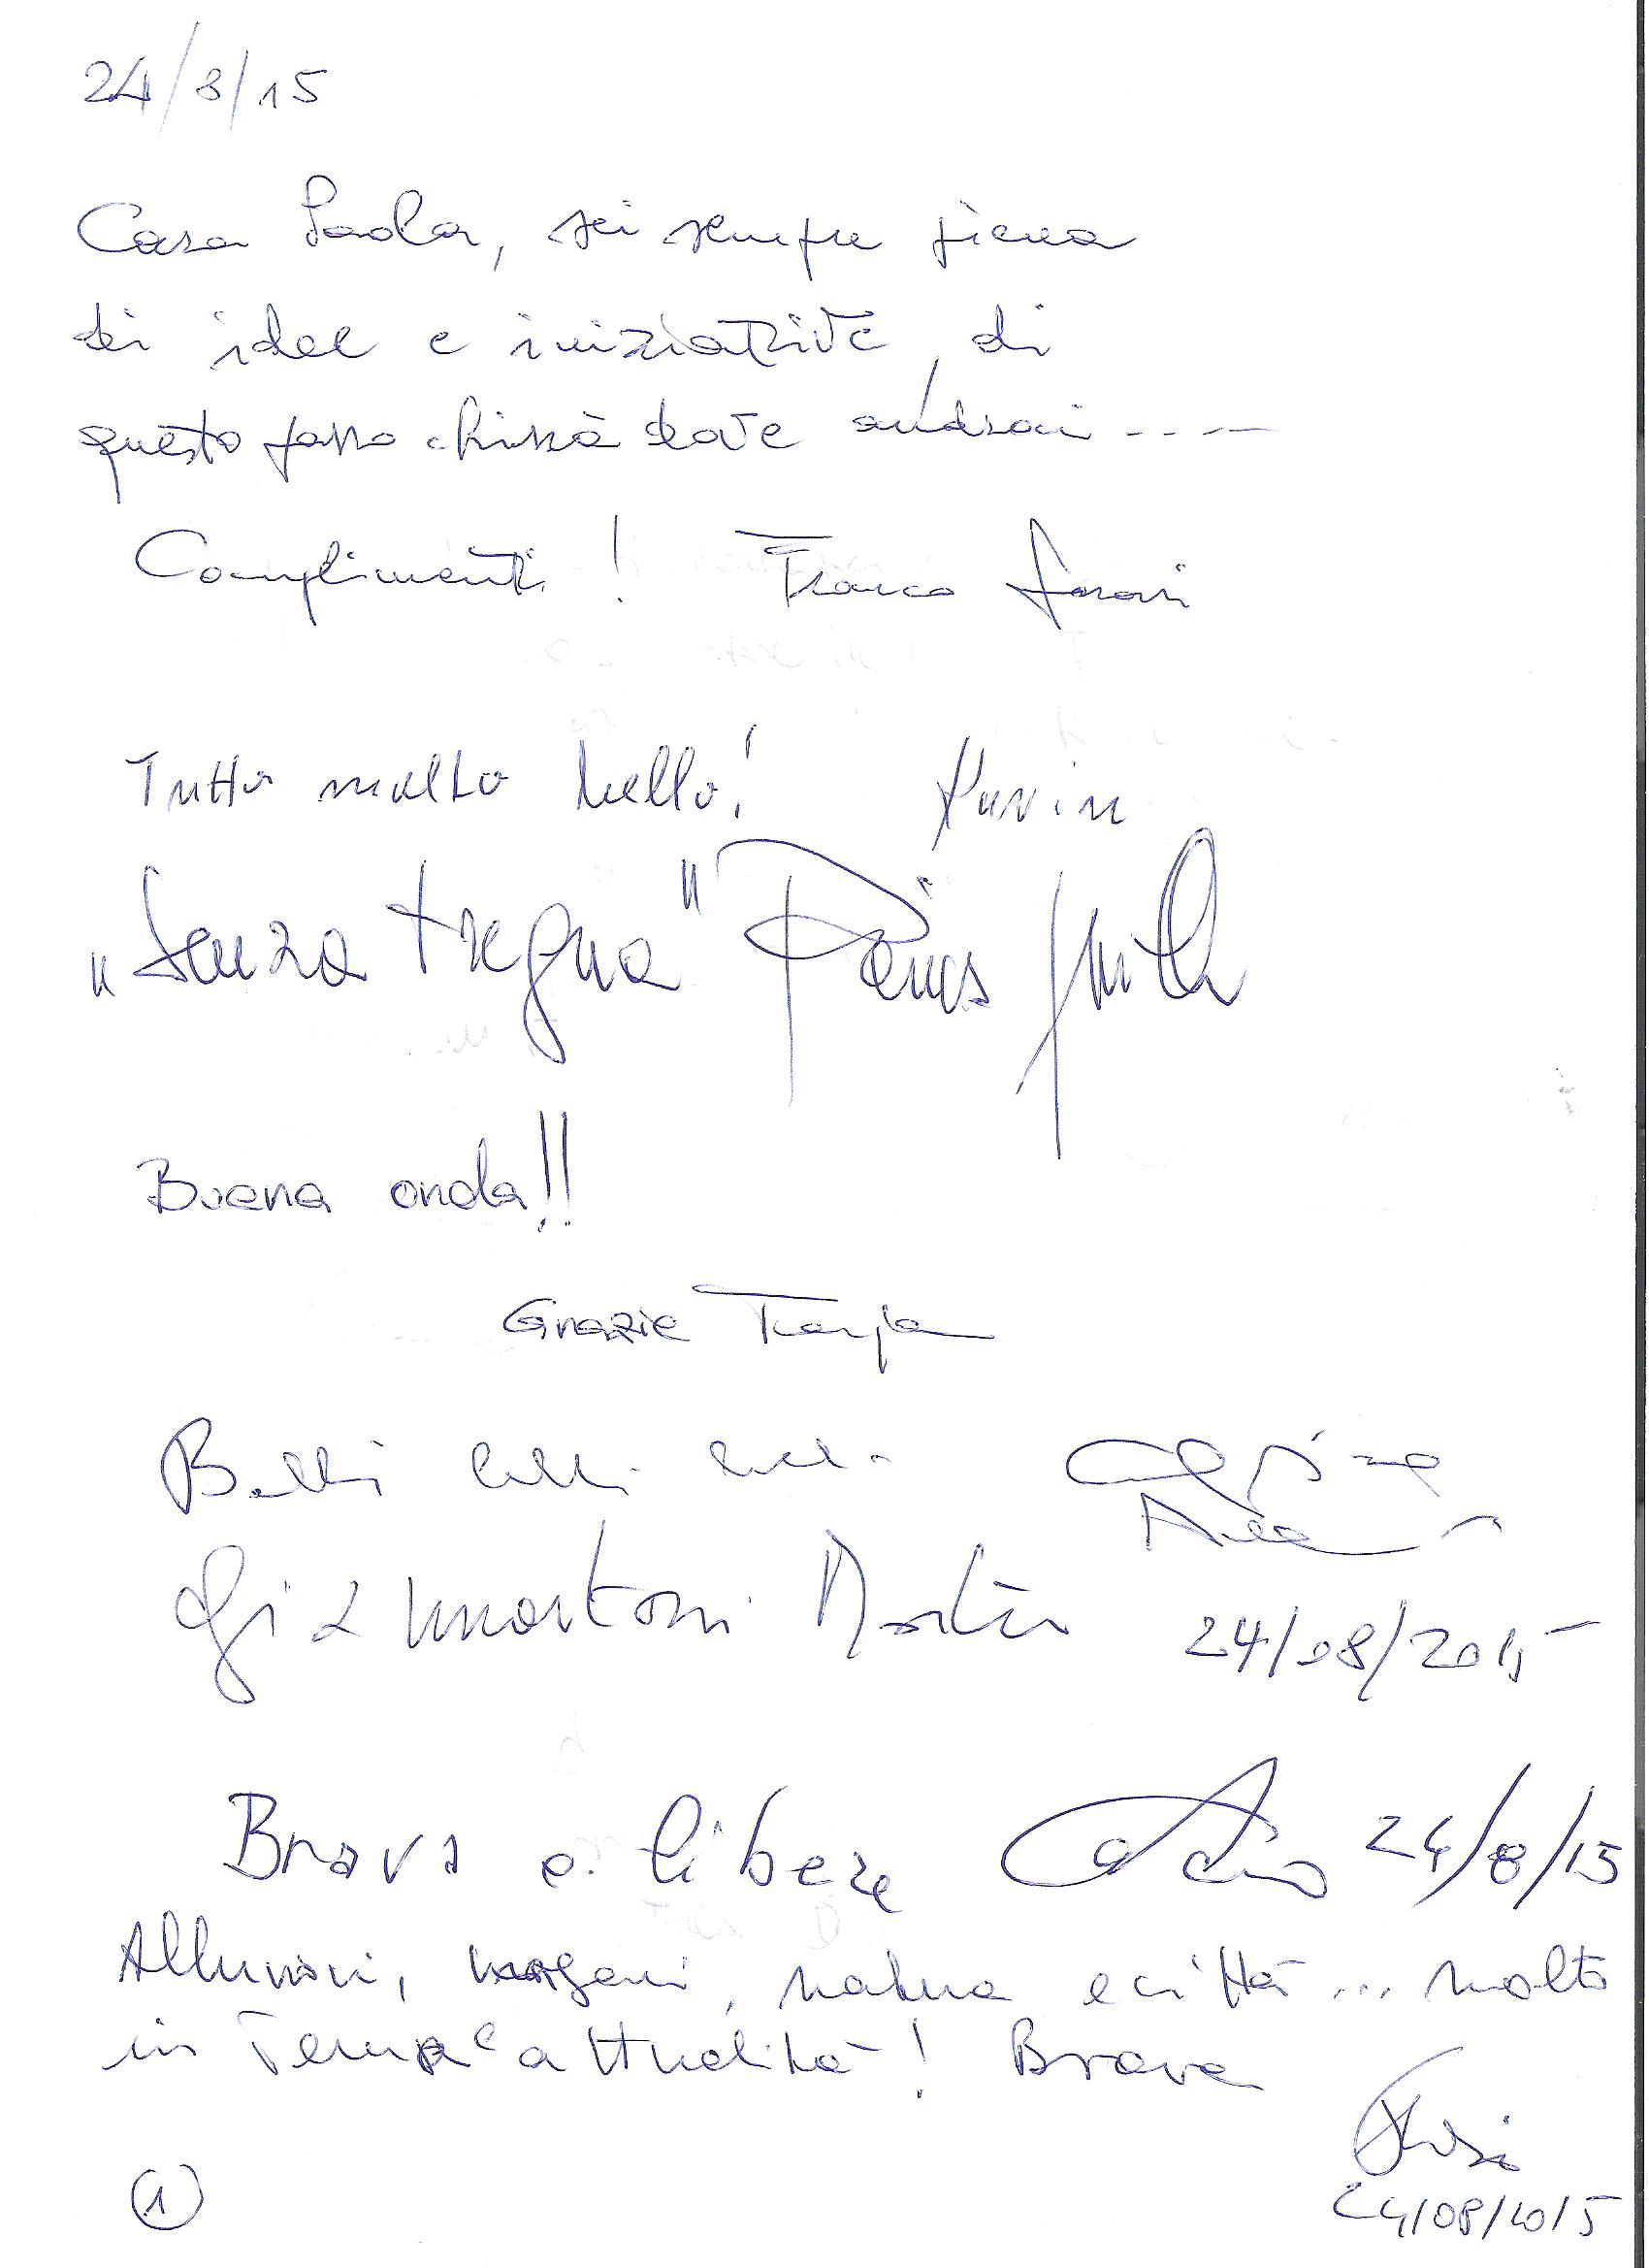 24/8/15
Cara Paola, sei sempre piena
di idee e iniziative, di
questo passo chissà dove andrai ----
Complimenti! Franco
Tutto molto bello!
"Senza tregua"
Buena onda!!
Grazie Tanja
Belli belli belli
Martin 24/08/2015
Brava e libera 24/8/15
Alluvioni, margini, natura e città ... molto
in tema e attualità! Brava
24/08/2015
1